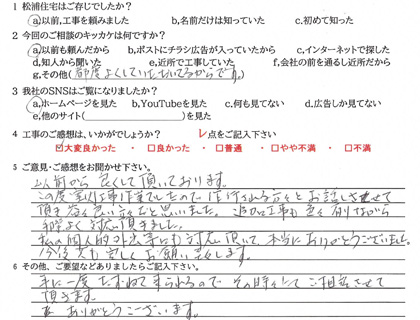 1 松浦住宅はご存じでしたか?
a,以前,工事を頼みました　b,名前だけは知っていた　c,初めて知った
2 今回のご相談のキッカケは何ですか?
a,以前も頼んだから　b,ポストにチラシ広告が入っていたから　c,インターネットで探した
d,知人から聞いた　e,近所で工事していた　f,会社の前を通るし近所だから
g,その他(都度よくしていただいてるからです。)
3 我社のSNSはご覧になりましたか?
a,ホームページを見た　b,YouTubeを見た　c,何も見てない　d,広告しか見てない
e,他のサイト(　)を見た
4 工事のご感想は、いかがでしょうか?　レ点をご記入下さい
☑大変良かった ・ □良かった ・ □普通 ・ □やや不満 ・ □不満
5 ご意見・ご感想をお聞かせ下さい。
以前から良くして頂いております。
この度
お話しさせて
頂き
と思いました。追加工事も
対応頂きました。
私の個人的
にも対応頂いて、本当にありがとうございました。
今後共宜しくお願い致します。
6 その他、ご要望などありましたらご記入下さい。
年に一度たずねて来られるので その時々にてご相談させて
頂きます。
ありがとうございます。